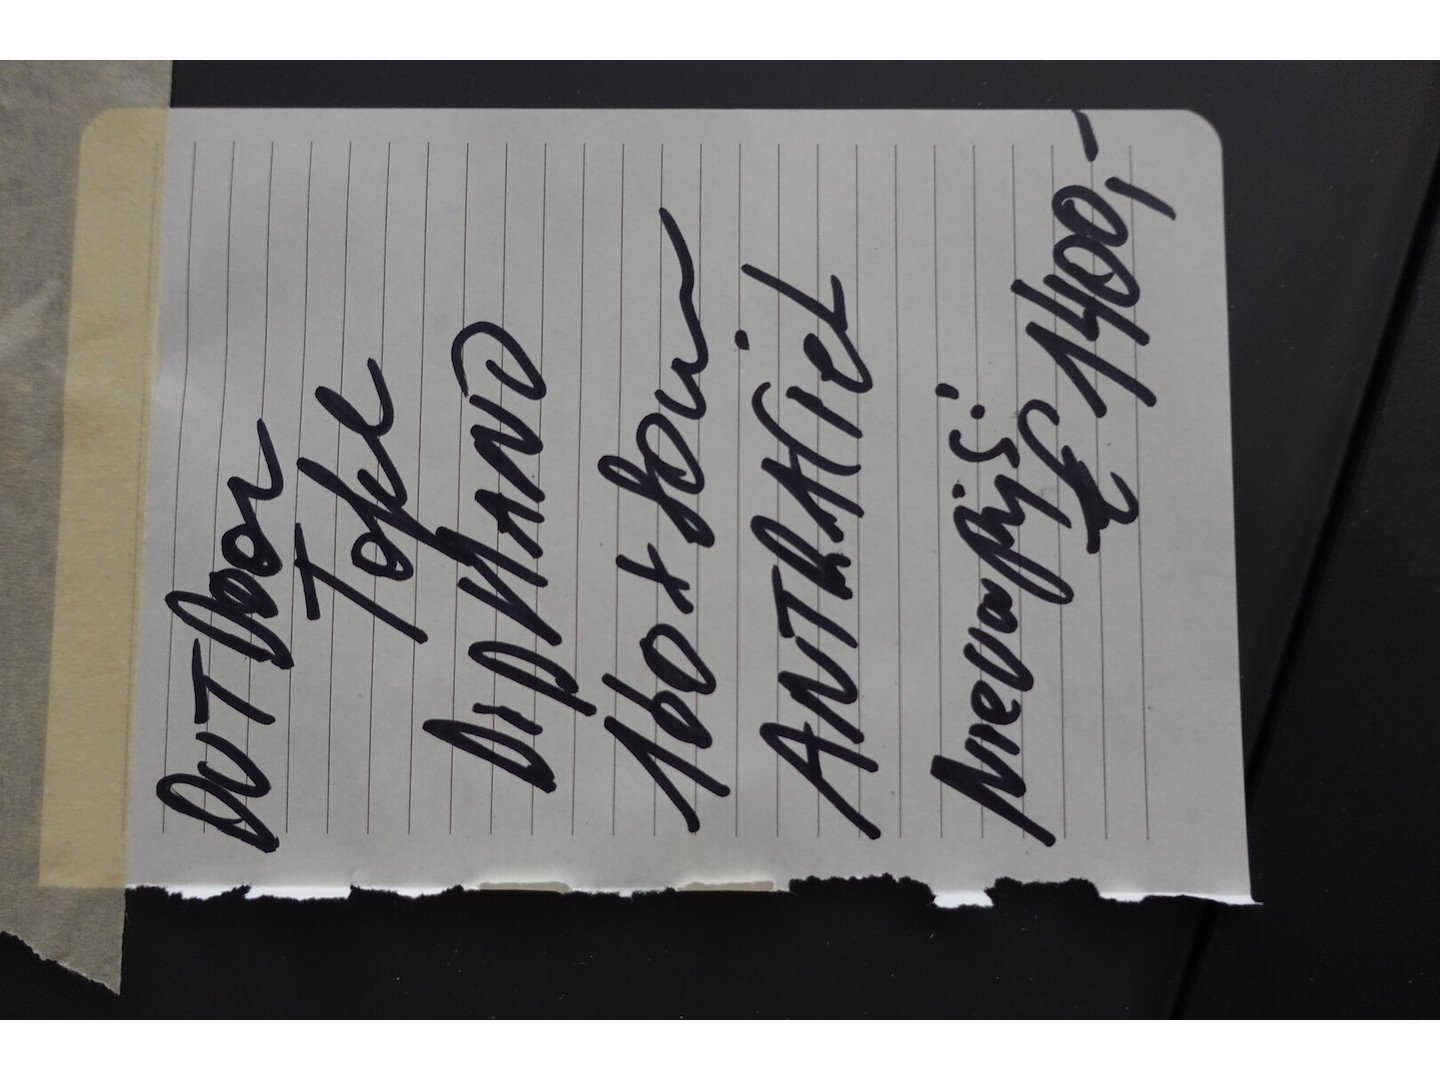 OUTDOOR
Tafel
DIPHANO
160 x 80cm
ANTRACIET
Nieuwprijs:
€ 1400,-